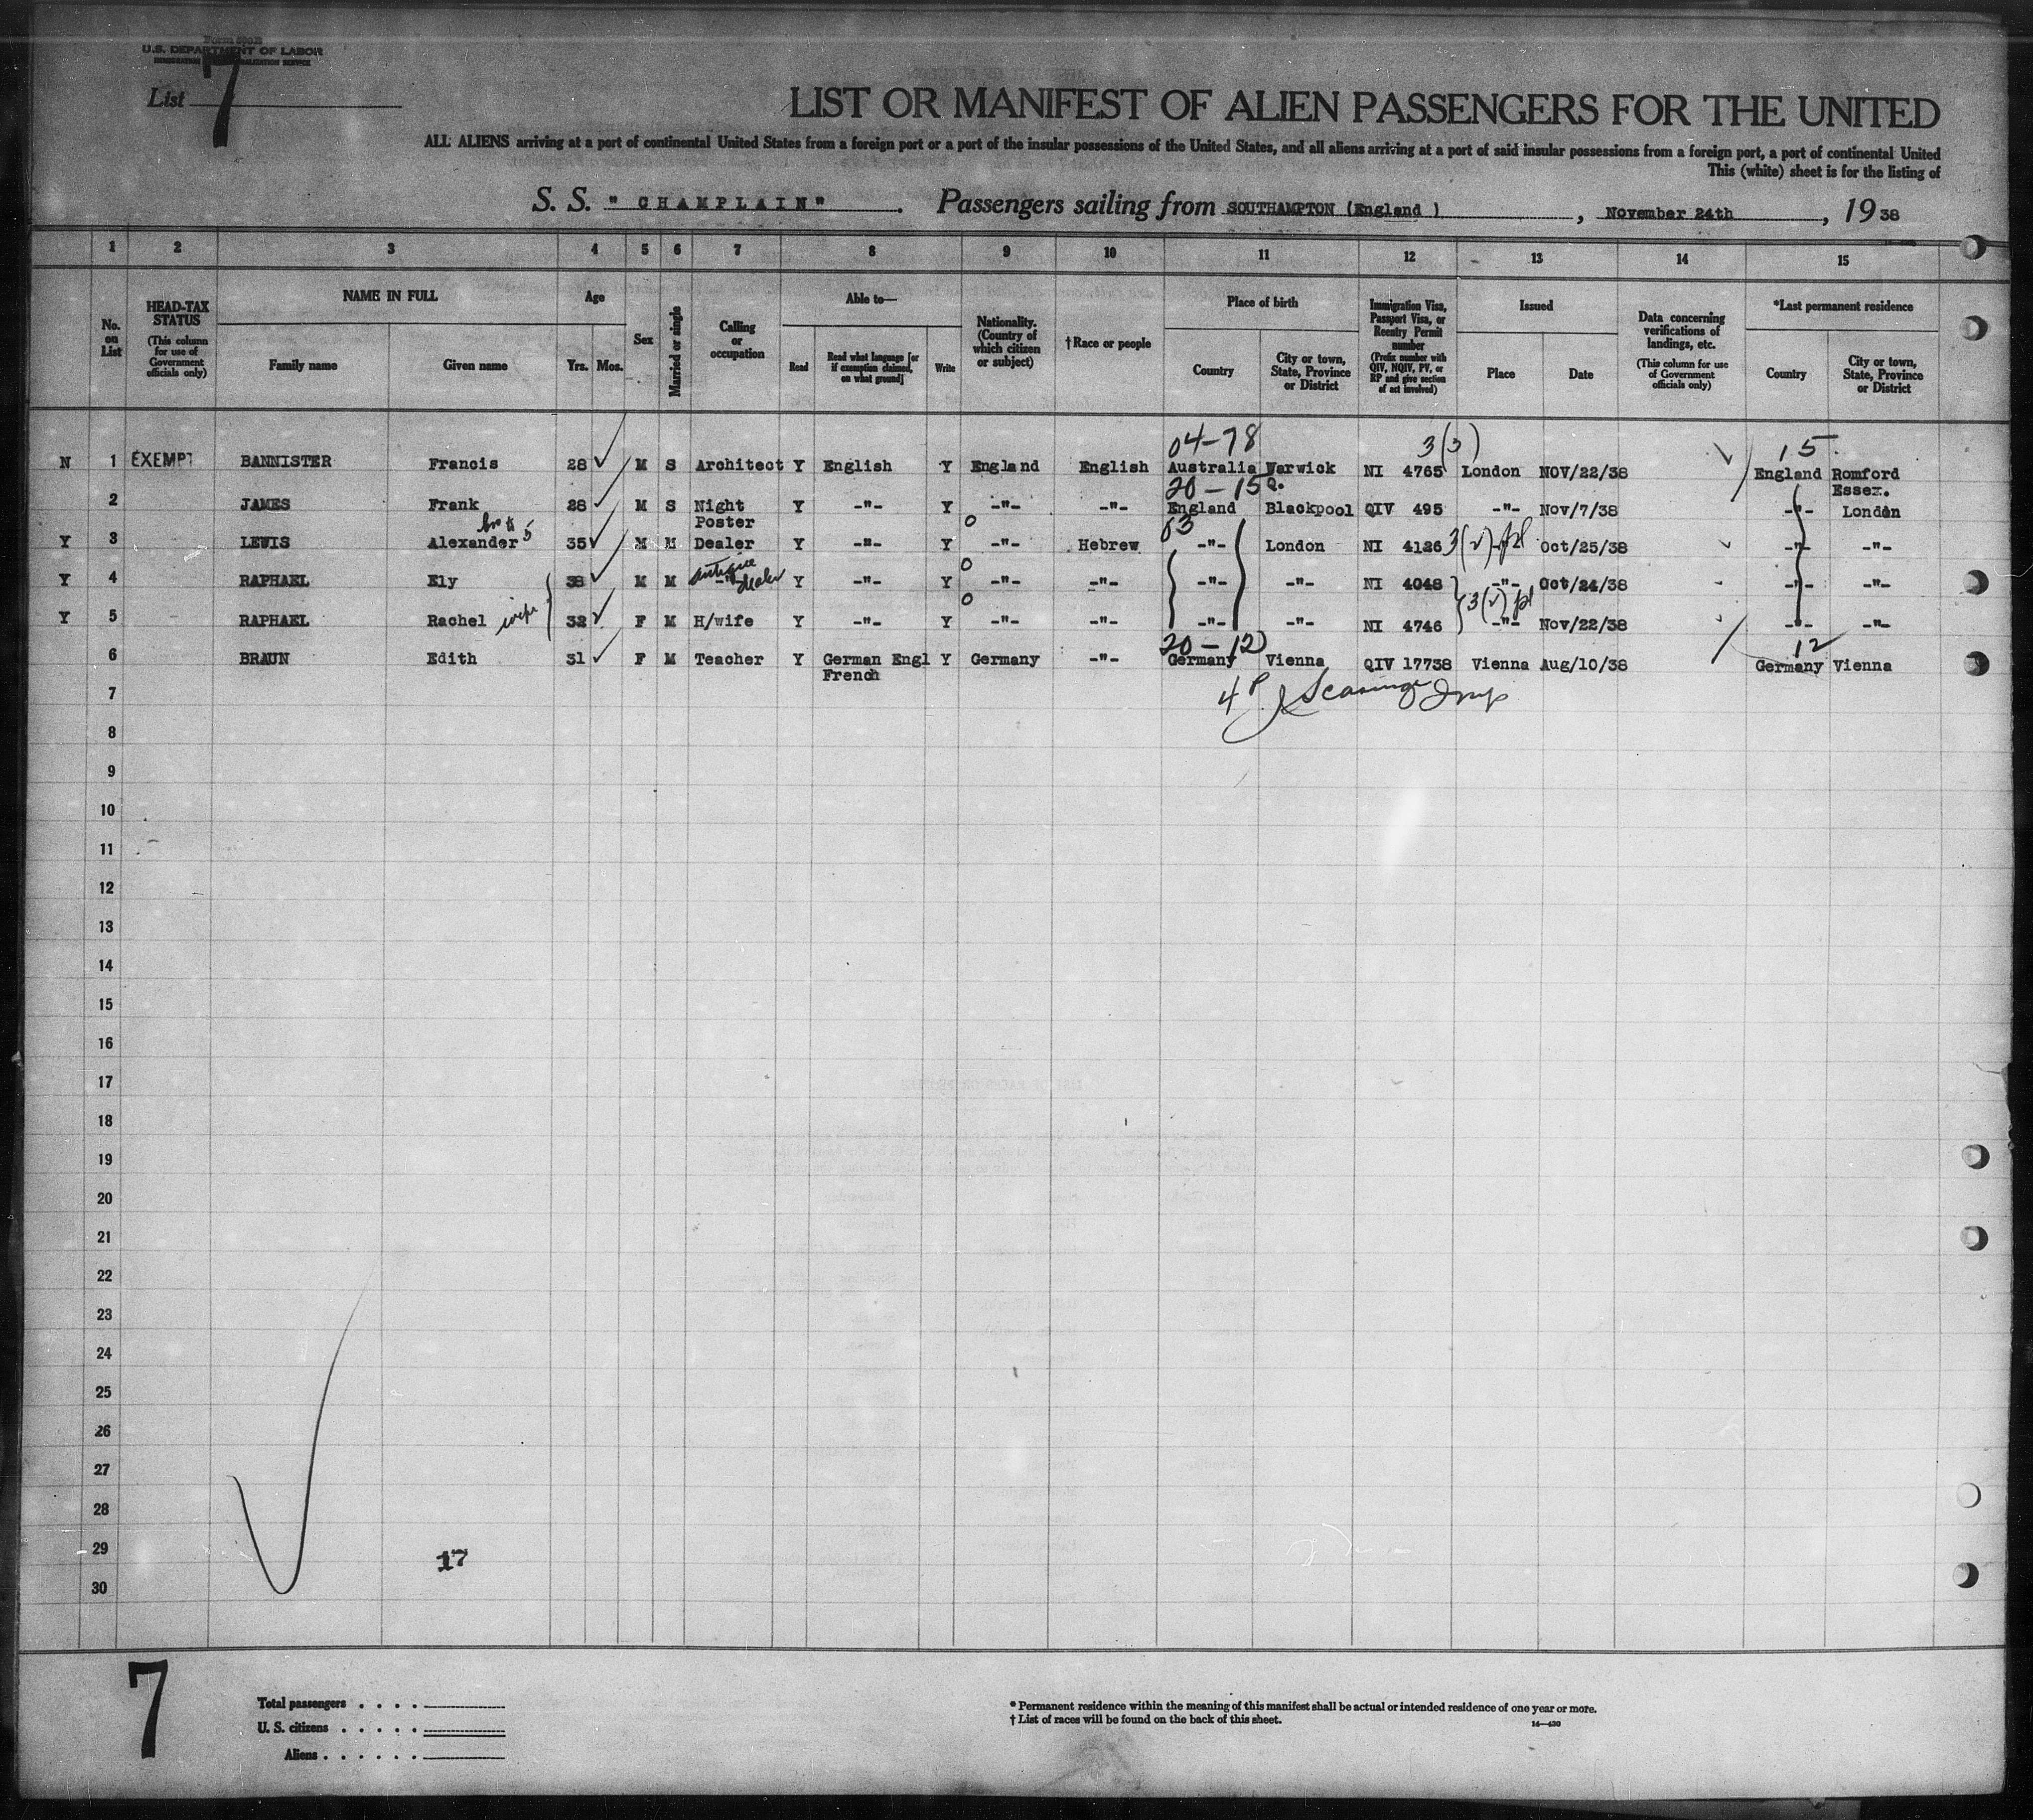 Form 500 B
U.S. DEPARTMENT OF LABOR
IMMIGRATION NATURALIZATION SERVICE
List 7
LIST OR MANIFEST OF ALIEN PASSENGERS FOR THE UNITED
ALL ALIENS arriving at a port of continental United States from a foreign port or a port of the insular possessions of the United States, and all aliens arriving at a port of said insular possessions from a foreign port, a port of continental United
This (white) sheet is for the listing of
S. S. " CHAMPLAIN" . Passengers sailing from SOUTHAMPTON (England ) , November 24th , 19 38
1 2 3 4 5 6 7 8 9 10 11 12 13 14 15
No. on List
HEAD-TAX STATUS (This column for use of Government officials only)
NAME IN FULL
Family name Given name
Age
Yrs. Mos.
Sex
Married or single
Calling or occupation
Able to—
Read Read what language [or if exemption claimed, on what ground] Write
Nationality. (Country of which citizen or subject)
†Race or people
Place of birth
Country City or town, State, Province or District
Immigration Visa, Passport Visa, or Reentry Permit number (Prefix number with QIV, NQIV, PV, or RP and give section of act involved)
Issued
Place Date
Data concerning verifications of landings, etc. (This column for use of Government officials only)
*Last permanent residence
Country City or town, State, Province or District
04-78 3(3) 15
N 1 EXEMPT BANNISTER Francis 28 M S Architect Y English Y England English Australia Warwick NI 4765 London NOV/22/38 England Romford
Essex.
20-15
2 JAMES Frank 28 M S Night Y -"- Y -"- -"- England Blackpool QIV 495 -"- Nov/7/38 -"- London
Poster
63
Y 3 LEWIS Alexander 35 M M Dealer Y -"- Y -"- Hebrew -"- London NI 4126 3(2) -"- Oct/25/38 -"- -"-
antique dealer
Y 4 RAPHAEL Ely 38 M M -"- Y -"- Y -"- -"- -"- -"- NI 4048 -"- Oct/24/38 -"- -"-
3(2)
Y 5 RAPHAEL Rachel wife 32 F M H/wife Y -"- Y -"- -"- -"- -"- NI 4746 -"- Nov/22/38 -"- -"-
20-12 12
6 BRAUN Edith 31 F M Teacher Y German Engl Y Germany -"- Germany Vienna QIV 17738 Vienna Aug/10/38 Germany Vienna
French
7
8
9
10
11
12
13
14
15
16
17
18
19
20
21
22
23
24
25
26
27
28
29
17
30
7
Total passengers . . . .
U. S. citizens . . . . .
Aliens . . . . . .
* Permanent residence within the meaning of this manifest shall be actual or intended residence of one year or more.
† List of races will be found on the back of this sheet.
14—430